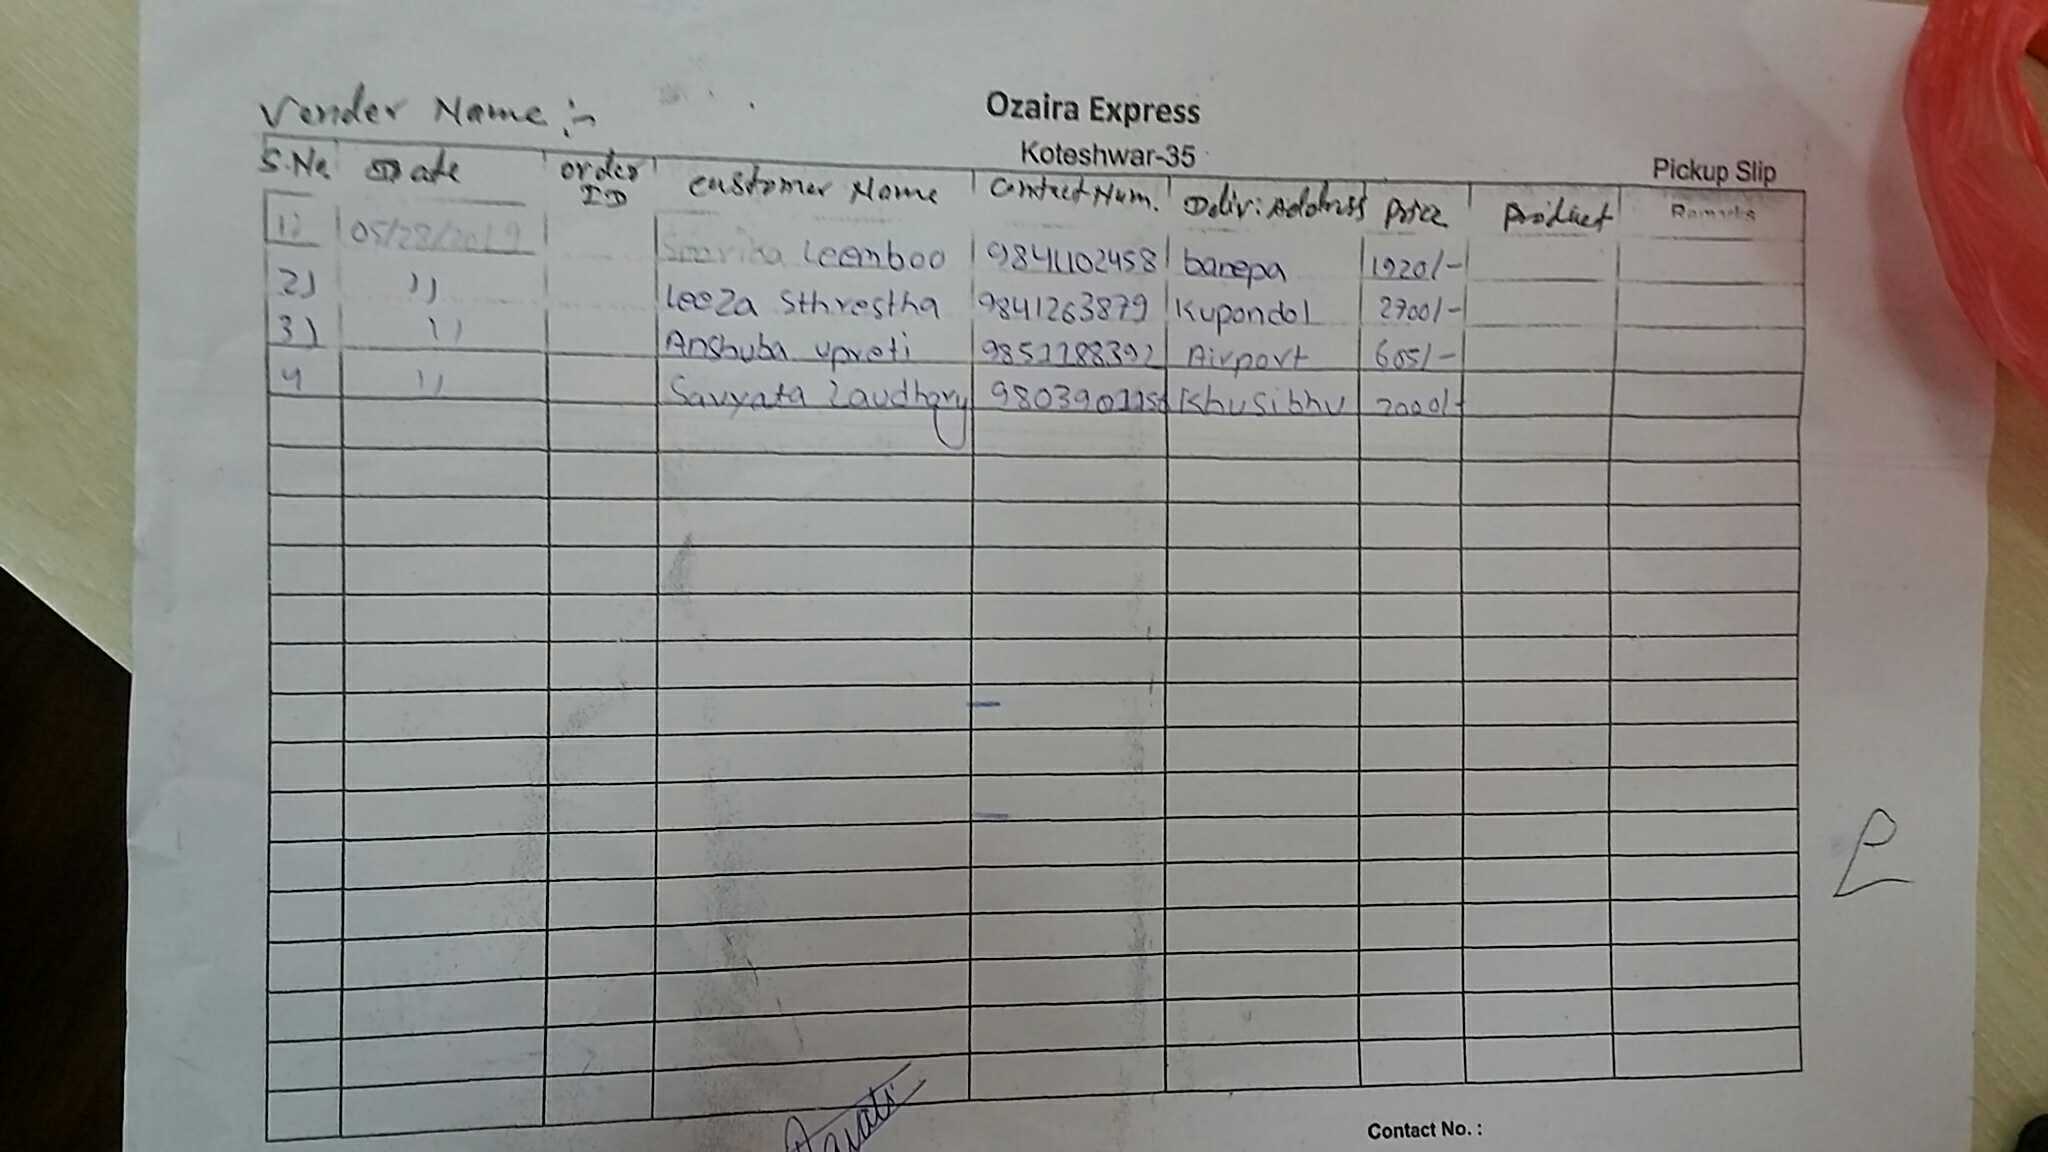 Ozaira Express
Vender Name :-
Koteshwar-35
Pickup Slip
S.No Date order ID Customer Name Contact Num. Deliv: Address Price Product Remarks
1) 05/28/2019 Leemboo 9841102458 banepa 1920/-
2) 11 Leeza Sthrestha 9841263879 Kupondol 2700/-
3) 11 Anshuba upreti 9851188392 Airport 605/-
4 11 Savyata Zaudhary Khusibhu 2000/-
Contact No. :